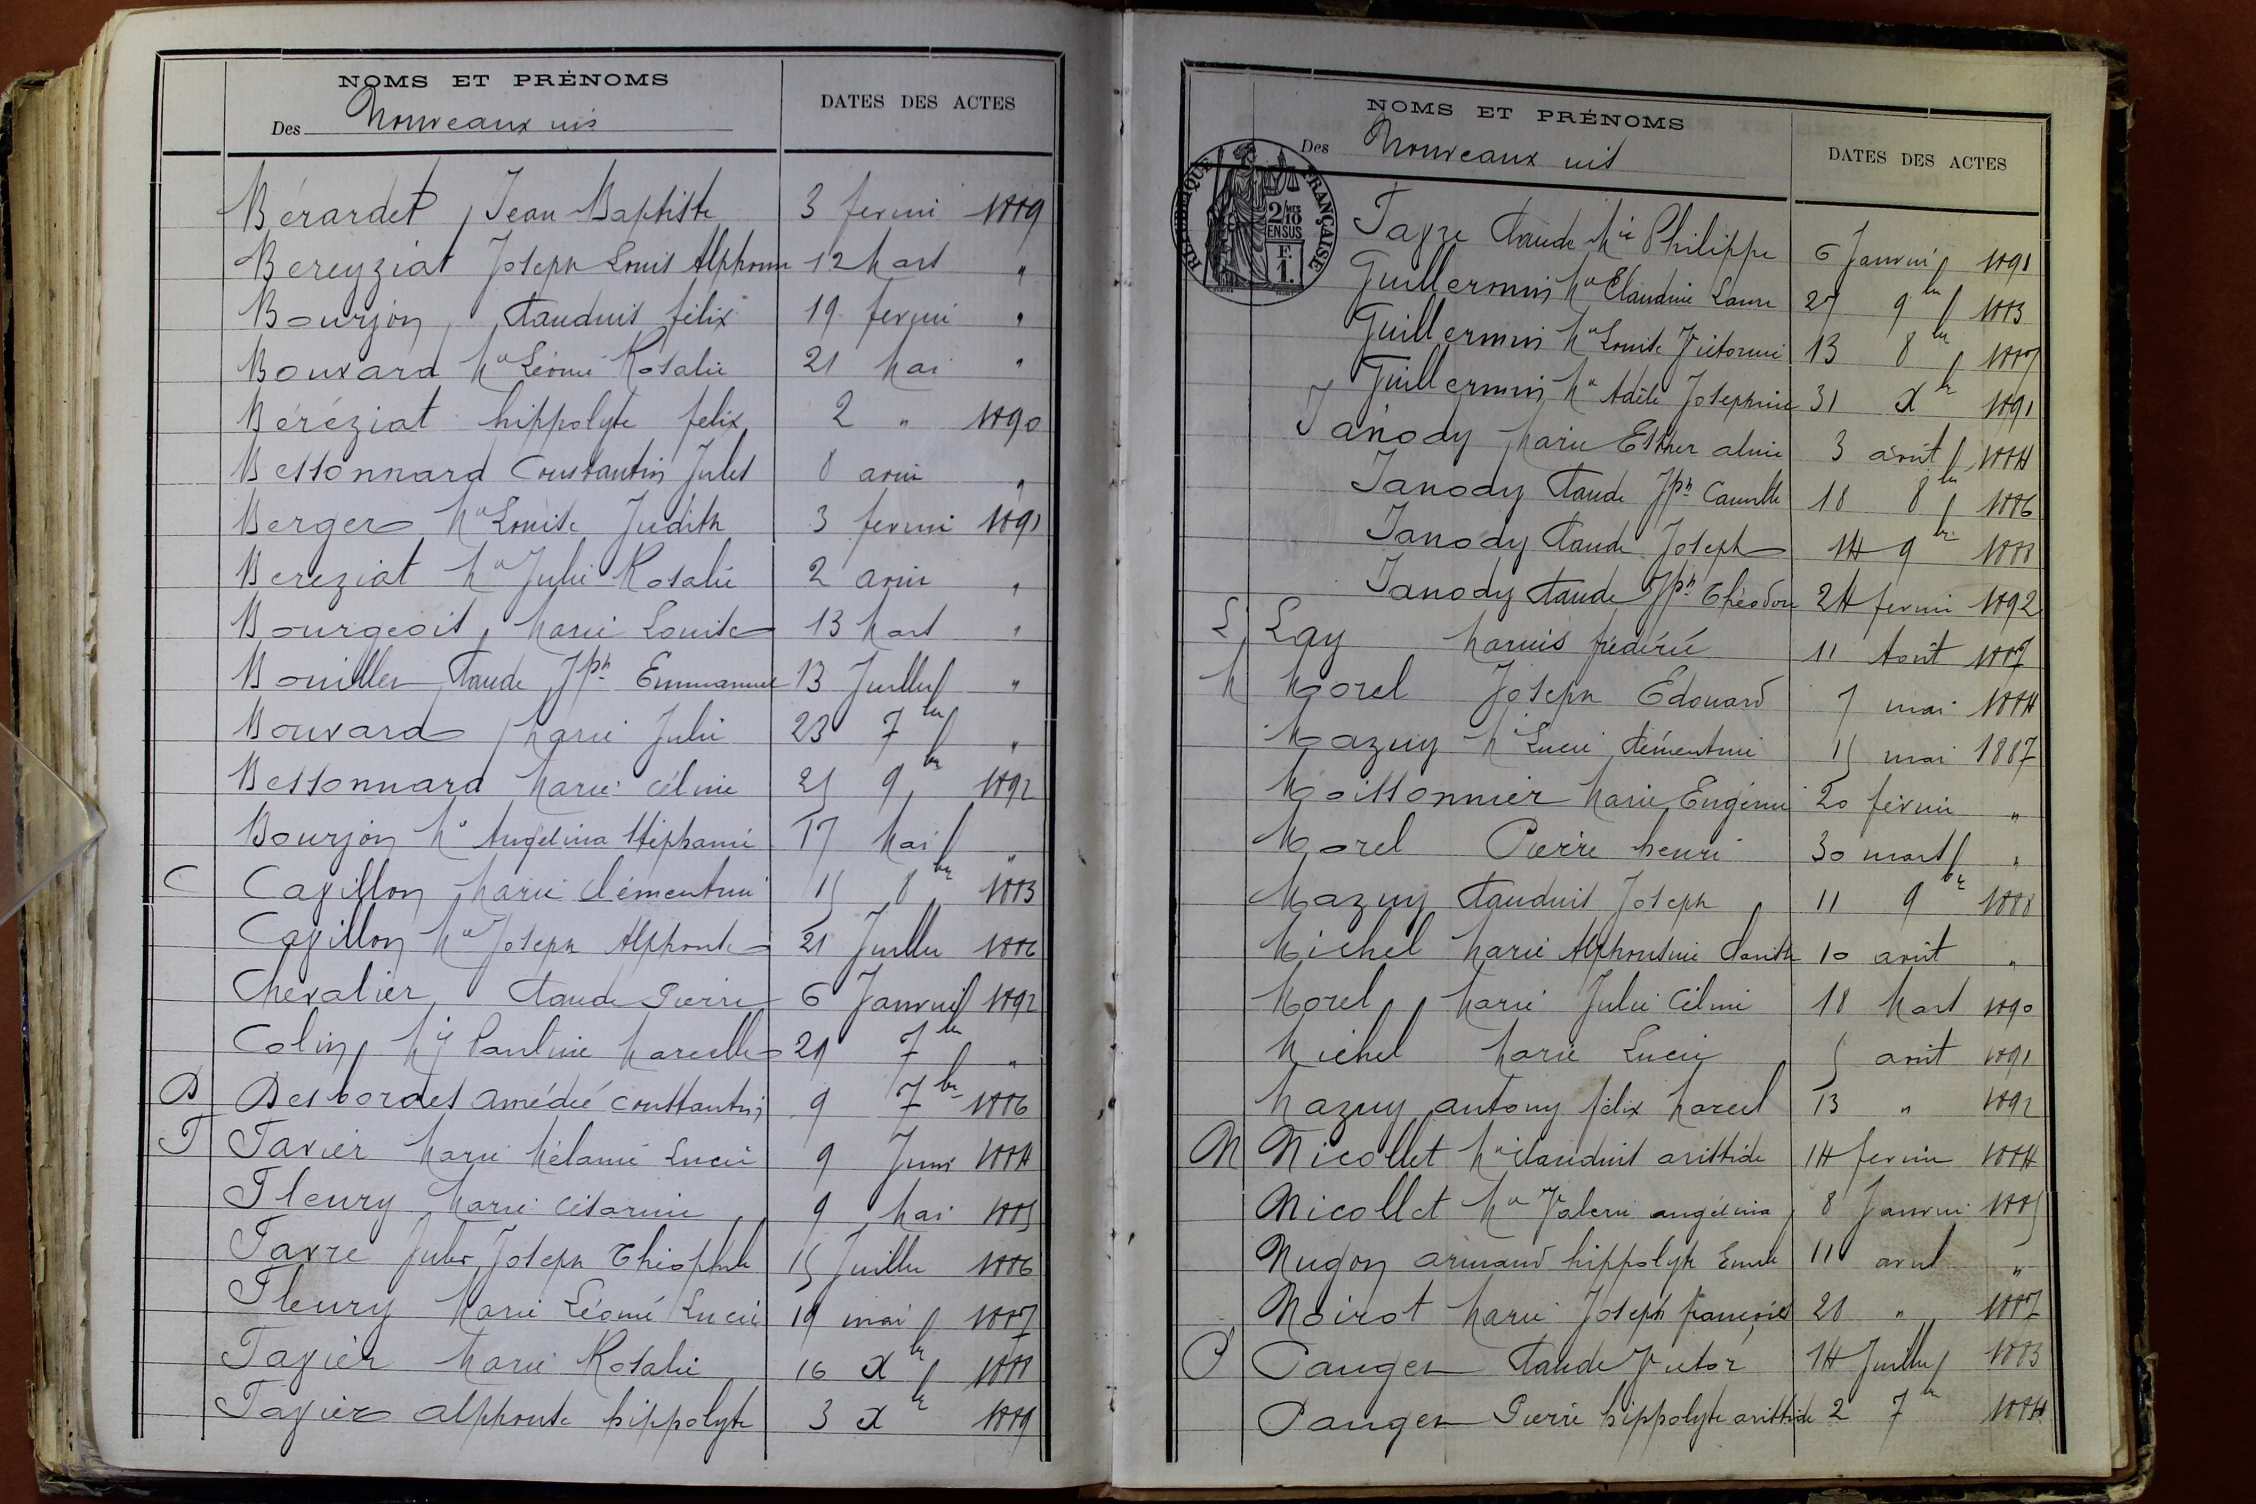 NOMS ET PRÉNOMS
Des Nouveaux nés
DATES DES ACTES
Bérardet Jean Baptiste 3 fevrier 1889
Bereyziat Joseph Louis Alphonse 12 Mars "
Bourjon Claudius félix 19 fevrier "
Bouvard Mie Léonie Rosalie 21 Mai "
Béréziat hippolyte felix 2 " 1890
Bessonnard Constantin Jules 8 avril "
Berger Mie Louise Judith 3 fevrier 1891
Bereziat Mie Julie Rosalie 2 avril "
Bourgeois Marie Louise 13 Mars "
Bouiller Claude Jph Emmanuel 13 Juillet "
Bouvard Marie Julie 23 7bre "
Bessonnard Marie Céline 25 9bre 1892
Bourjon Mie Angelina Stéphanie 17 Mai "
C Cavillon Marie Clémentine 15 8bre 1883
Cavillon Mie Joseph Alphonse 21 Juillet 1886
Chevalier Claude Pierre 6 Janvier 1892
Colin Mie Pauline Marcelle 29 7bre "
D Desbordes amédée constantin 9 7bre 1886
F Favier Marie Mélanie Lucie 9 Juin 1884
Fleury Marie Césarine 9 Mai 1885
Favre Jules Joseph Théophile 15 Juillet 1886
Fleury Marie Léonie Lucie 19 mai 1887
Favier Marie Rosalie 16 Xbre 1888
Favier alphonse hippolyte 3 Xbre 1889
NOMS ET PRÉNOMS
Des Nouveaux nés
DATES DES ACTES
RÉPUBLIQUE FRANÇAISE
2/10 MES
EN SUS
F.
1.
Favre Claude Mie Philippe 6 Janvier 1891
Guillermin Mie Claudine Laure 27 9bre 1883
Guillermin Mie Louise Victorine 13 8bre 1887
Guillermin Mie Adèle Josephine 31 Xbre 1891
J Janody Marie Esther aline 3 août 1884
Janody Claude Jph Camille 18 8bre 1886
Janody Claude Joseph 14 9bre 1888
Janody Claude Jph Théodore 24 fevrier 1892
L Lay Marius frédéric 11 Août 1887
M Morel Joseph Edouard 7 mai 1884
Mazuy Mie Lucie Clémentine 15 mai 1887
Moissonnier Marie Eugénie 20 février "
Morel Pierre henri 30 mars "
Mazuy Claudius Joseph 11 9bre 1888
Michel Marie Alphonsine 10 août "
Morel Marie Julie Céline 18 Mars 1890
Michel Marie Lucie 5 août 1891
Mazuy antony félix Marcel 13 " 1892
N Nicollet Mie Claudius aristide 14 fevrier 1884
Nicollet Mie Valerie angélina 8 Janvier 1885
Nugon armand hippolyte Emile 11 avril "
Noirot Marie Joseph françois 28 " 1887
P Pauget Claude Victor 14 Juillet 1883
Pauget Pierre hippolyte aristide 2 7bre 1884